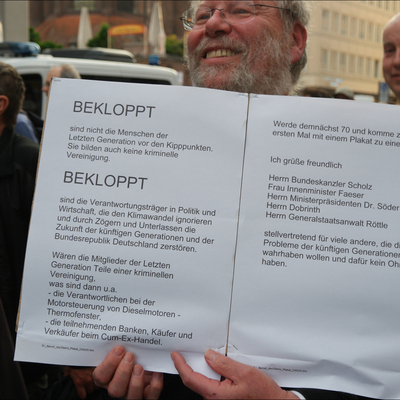 BEKLOPPT
sind nicht die Menschen der
Letzten Generation vor den Kipppunkten.
Sie bilden auch keine kriminelle
Vereinigung.
BEKLOPPT
sind die Verantwortungsträger in Politik und
Wirtschaft, die den Klimawandel ignorieren
und durch Zögern und Unterlassen die
Zukunft der künftigen Generationen und der
Bundesrepublik Deutschland zerstören.
Wären die Mitglieder der Letzten
Generation Teile einer kriminellen
Vereinigung,
was sind dann u.a.
- die Verantwortlichen bei der
Motorsteuerung von Dieselmotoren -
Thermofenster,
- die teilnehmenden Banken, Käufer und
Verkäufer beim Cum-Ex-Handel.
Werde demnächst 70 und komme z
ersten Mal mit einem Plakat zu eine
Ich grüße freundlich
Herrn Bundeskanzler Scholz
Frau Innenminister Faeser
Herrn Ministerpräsidenten Dr. Söder
Herrn Dobrinth
Herrn Generalstaatsanwalt Röttle
stellvertretend für viele andere, die di
Probleme der künftigen Generationen
wahrhaben wollen und dafür kein Oh
haben.